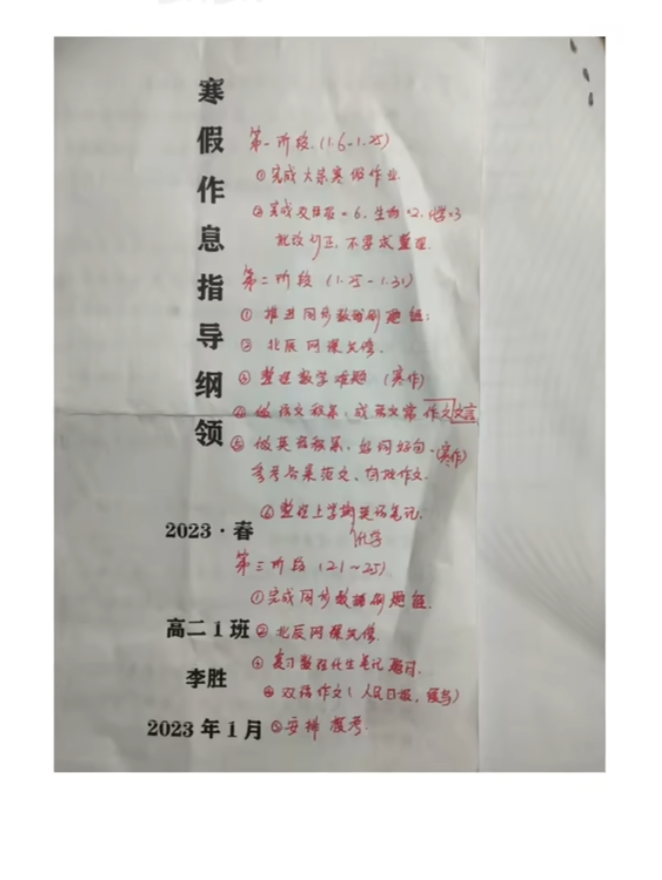 寒假作息指导纲领
2023·春
高二1班
李胜
2023年1月
第一阶段.(1.6-1.25)
①完成大荣寒假作业.
②完成 ×6.生物×2.化学×3
批改订正,不要求整理.
第二阶段(1.25-1.31)
① 推进同步数 刷题组;
② 北辰网课先修.
④ 整理数学难题(寒作)
④ 做语文积累、 文常 作文 文言
⑤ 做英语积累、好词好句·(寒作)
参考答案范文、 作文.
⑥ 整理上学期英语笔记.
化学
第三阶段(2.1~2.5)
①完成同步数 刷题组.
② 北辰网课先修.
④ 复习整理化生笔记
④ 双语作文(人民日报, )
⑤ 安排 考.